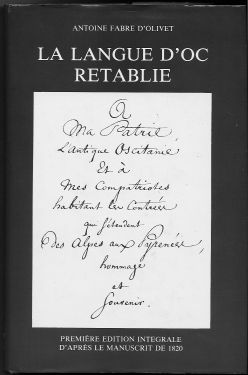 ANTOINE FABRE D'OLIVET
LA LANGUE D'OC
RETABLIE
A
Ma Patrie,
L'antique Oscitanie
Et à
Mes Compatriotes
habitant les Contrées
qui s'étendent
des Alpes aux Pyrenées,
hommage
et
Souvenir.
PREMIÈRE EDITION INTEGRALE
D'APRÈS LE MANUSCRIT DE 1820